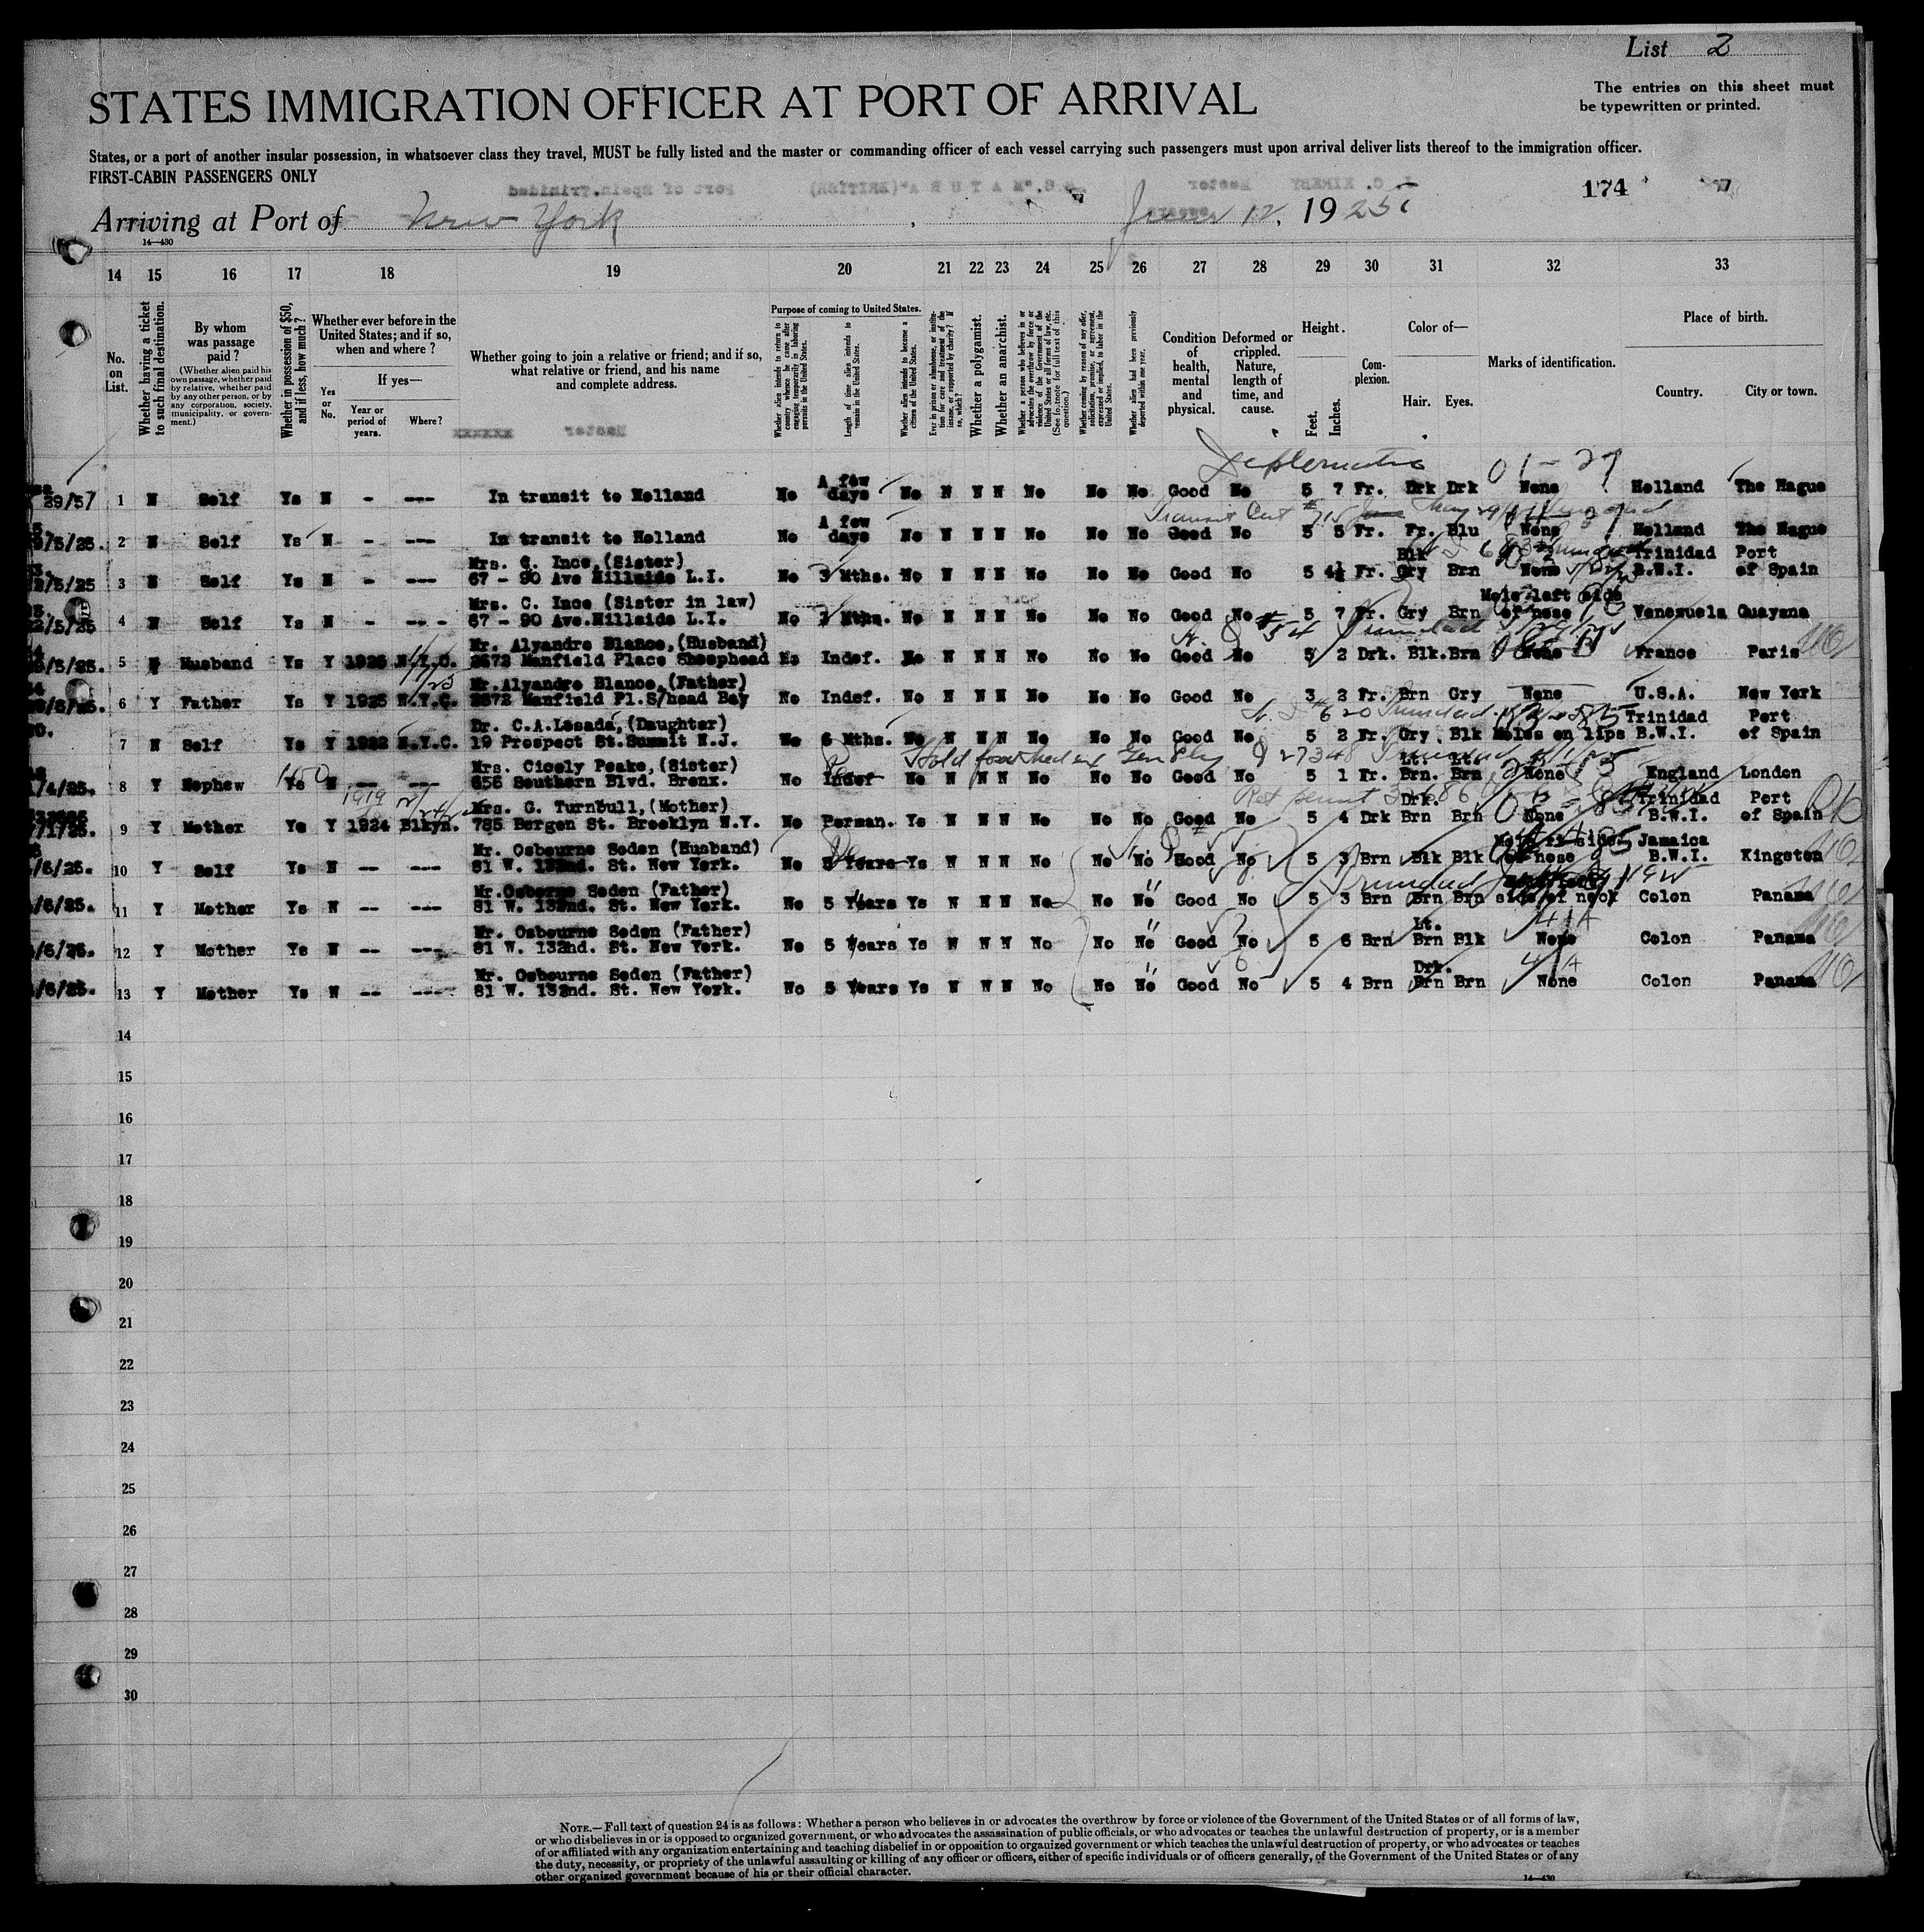 List 2
The entries on this sheet must
be typewritten or printed.
STATES IMMIGRATION OFFICER AT PORT OF ARRIVAL
States, or a port of another insular possession, in whatsoever class they travel, MUST be fully listed and the master or commanding officer of each vessel carrying such passengers must upon arrival deliver lists thereof to the immigration officer.
FIRST-CABIN PASSENGERS ONLY
174
Arriving at Port of New York, June 12, 1925
14—430
14 15 16 17 18 19 20 21 22 23 24 25 26 27 28 29 30 31 32 33
No. on List.
Whether having a ticket to such final destination.
By whom was passage paid?
(Whether alien paid his own passage, whether paid by relative, whether paid by any other person, or by any corporation, society, municipality, or government.)
Whether in possession of $50, and if less, how much?
Whether ever before in the United States; and if so, when and where?
Yes or No.
If yes—
Year or period of years.
Where?
Whether going to join a relative or friend; and if so, what relative or friend, and his name and complete address.
Purpose of coming to United States.
Whether alien intends to return to country whence he came after engaging temporarily in laboring pursuits in the United States.
Length of time alien intends to remain in the United States.
Whether alien intends to become a citizen of the United States.
Ever in prison or almshouse, or institution for care and treatment of the insane, or supported by charity? If so, which?
Whether a polygamist.
Whether an anarchist.
Whether coming by reason of any offer, solicitation, promise, or agreement, expressed or implied, to labor in the United States.
Whether alien had been previously deported within one year.
Condition of health, mental and physical.
Deformed or crippled. Nature, length of time, and cause.
Height.
Feet. Inches.
Complexion.
Color of—
Hair. Eyes.
Marks of identification.
Place of birth.
Country. City or town.
29/57 1 N Self Ys N - --- In transit to Holland No A few days No N N N No No No Good No 5 7 Fr. Drk Drk None Holland The Hague
/5/25. 2 N Self Ys N - --- In transit to Holland No A few days No N N N No No No Good No 5 5 Fr. Fr. Blu None Holland The Hague
2/5/25 3 N Self Ys N - --- Mrs. C. Ince, (Sister) 67 - 90 Ave Hillside L.I. No 3 Mths. No N N N No No No Good No 5 4½ Fr. Blk Gry Brn None Trinidad B.W.I. Port of Spain
2/5/25 4 N Self Ys N - --- Mrs. C. Ince (Sister in law) 67 - 90 Ave. Hillside L.I. No 3 Mths. No N N N No No No Good No 5 7 Fr. Gry Brn Mole left side of nose Venezuela Guayana
/5/25. 5 N Husband Ys Y 1925 N.Y.C. Mr. Alyandre Blance, (Husband) 2572 Manfield Place Sheephead No Indef. No N N N No No No Good No 5 2 Drk. Blk. Brn None France Paris
6 Y Father Ys Y 1925 N.Y.C. Mr. Alyandre Blance, (Father) 2572 Manfield Pl. S/head Bay No Indef. No N N N No No No Good No 3 2 Fr. Brn Gry None U.S.A. New York
7 N Self Ys Y 1922 N.Y.C. Dr. C.A.Losada, (Daughter) 19 Prospect St. Summit N.J. No 6 Mths. No N N N No No No Good No 5 2 Fr. Gry Blk Moles on lips Trinidad B.W.I. Port of Spain
/4/25. 8 Y Nephew Ys N -- --- Mrs. Cicely Peake, (Sister) 656 Southern Blvd. Bronx. No Indef No N N N No No No Good No 5 1 Fr. Lt. Brn. Lt. Brn None England London
9 Y Mother Ys Y 1924 Blkyn. Mrs. G. Turnbull, (Mother) 785 Bergen St. Brooklyn N.Y. No Perman. Ys N N N No No No Good No 5 4 Drk Drk. Brn Brn None Trinidad B.W.I. Port of Spain
/6/25. 10 Y Self Ys N -- --- Mr. Osbourne Seden (Husband) 81 W. 132nd. St. New York. No 5 Years Ys N N N No No No Good No 5 3 Brn Blk Blk of nose Jamaica B.W.I. Kingston
/6/25. 11 Y Mother Ys N -- --- Mr. Osborne Seden (Father) 81 W. 132nd. St. New York. No 5 Years Ys N N N No No No Good No 5 3 Brn Brn Brn side of neck Colon Panama
/6/25. 12 Y Mother Ys N -- --- Mr. Osbourne Seden (Father) 81 W. 132nd. St. New York. No 5 Years Ys N N N No No No Good No 5 6 Brn Lt. Brn Blk None Colon Panama
/6/25. 13 Y Mother Ys N -- --- Mr. Osbourne Seden (Father) 81 W. 132nd. St. New York. No 5 Years Ys N N N No No No Good No 5 4 Brn Drk. Brn Brn None Colon Panama
14
15
16
17
18
19
20
21
22
23
24
25
26
27
28
29
30
NOTE.—Full text of question 24 is as follows: Whether a person who believes in or advocates the overthrow by force or violence of the Government of the United States or of all forms of law,
or who disbelieves in or is opposed to organized government, or who advocates the assassination of public officials, or who advocates or teaches the unlawful destruction of property, or is a member
of or affiliated with any organization entertaining and teaching disbelief in or opposition to organized government or which teaches the unlawful destruction of property, or who advocates or teaches
the duty, necessity, or propriety of the unlawful assaulting or killing of any officer or officers, either of specific individuals or of officers generally, of the Government of the United States or of any
other organized government because of his or their official character.
14—430